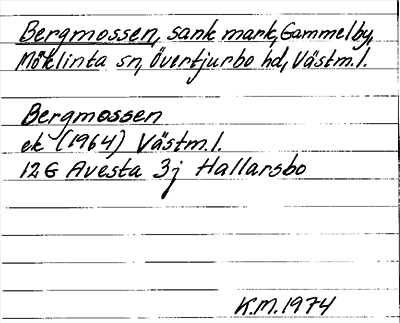 Bergmossen, sank mark, Gammelby,
Möklinta sn, Övertjurbo hd, Västm.l.
Bergmossen
ek (1964) Västm.l.
12G Avesta 3j Hallarsbo
K.M.1974